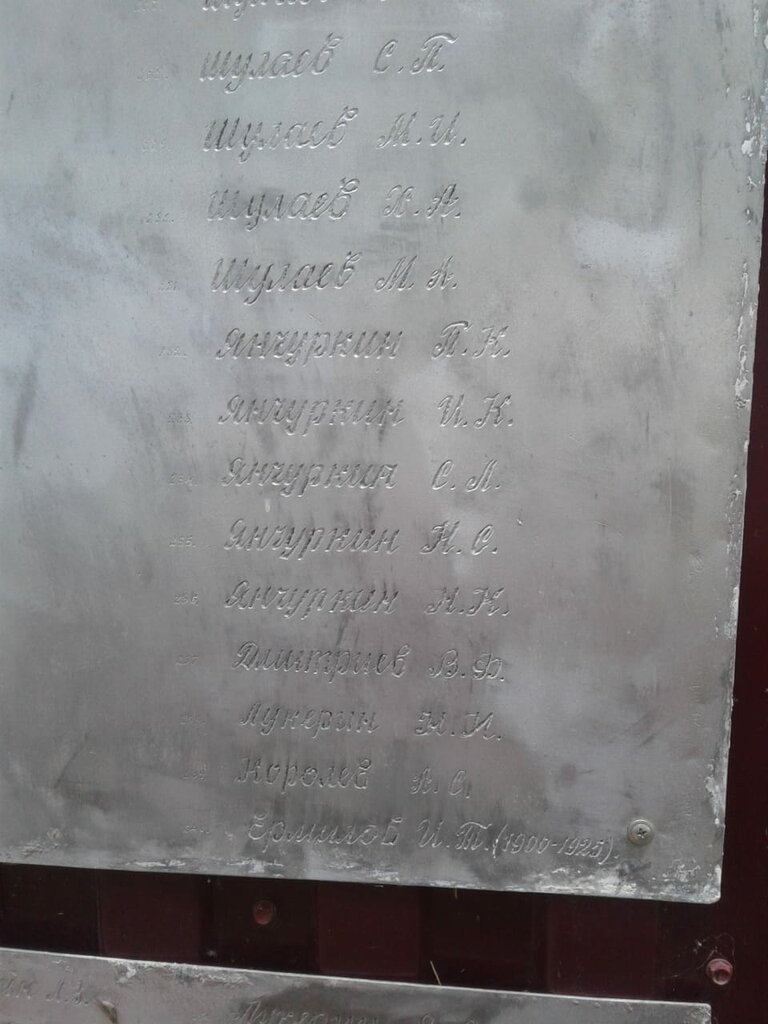 Шулаев С.П.
Шулаев М.И.
Шулаев Х.А.
Шулаев М.А.
Янчуркин П.К.
Янчуркин И.К.
Янчуркин С.Л.
Янчуркин Н.С.
Янчуркин Н.К.
Дмитриев В.Ф.
Лукерин Н.И.
Королев А.С.
Ермилов И.Т. (1900-1925).